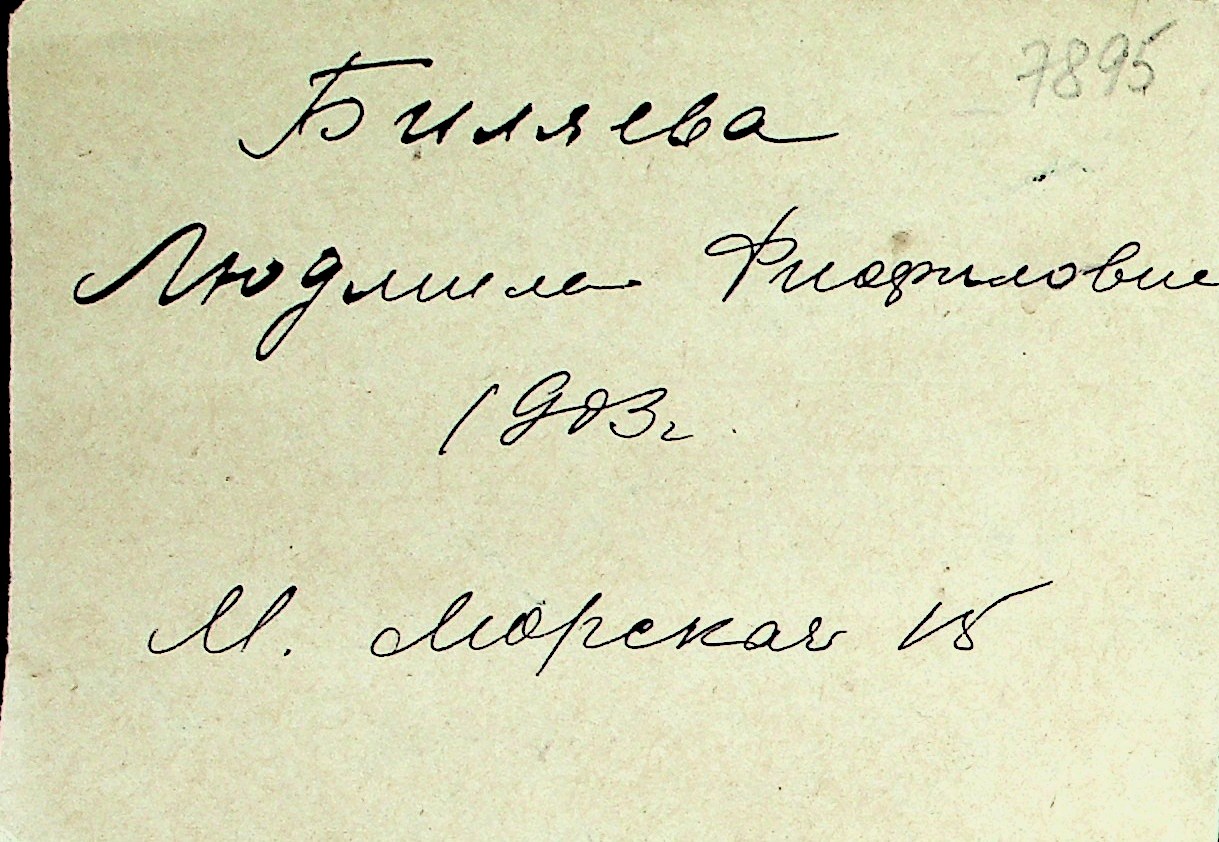 7895
Биляева
Людмила Фиофиловне
1903г
М. Морская 15